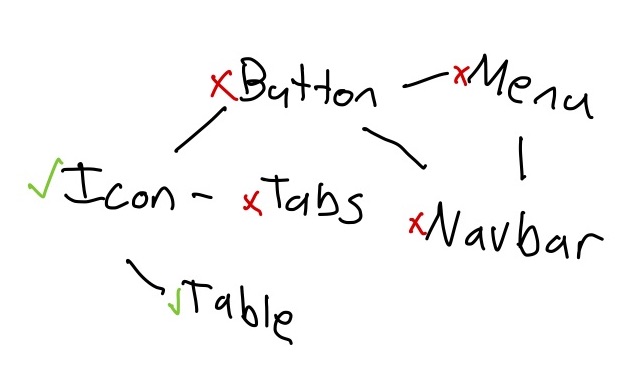 xButton
xMenu
√Icon
xTabs
xNavbar
√Table